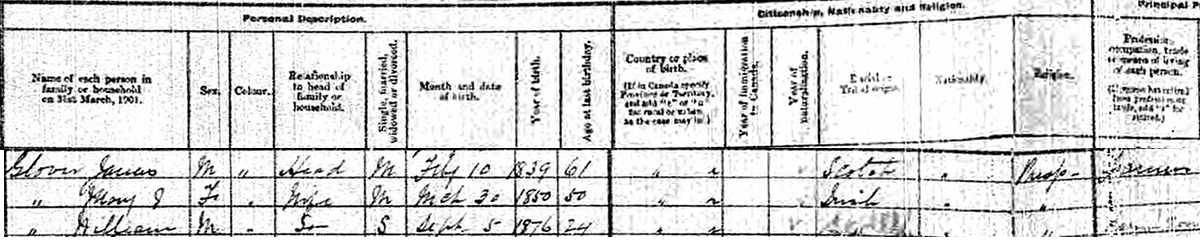 Personal Description. Citizenship, Nationality and Religion. Principal P
Name of each person in family or household on 31st March, 1901.
Sex.
Colour.
Relationship to head of family or household.
Single, married, widowed or divorced.
Month and date of birth.
Year of birth.
Age at last birthday.
Country or place of birth. (If in Canada specify Province or Territory, and add "r" or "u" for rural or urban as the case may be.)
Year of immigration to Canada.
Year of naturalization.
Racial or Tribal origin.
Nationality.
Religion.
Profession, occupation, trade or means of living of each person.
Glover James M " Head M Feby 10 1839 61 " " Scotch " Presb Farmer
" Mary J F " Wife M Mch 30 1850 50 " " Irish " "
" William M " Son S Sept 5 1876 24 " "